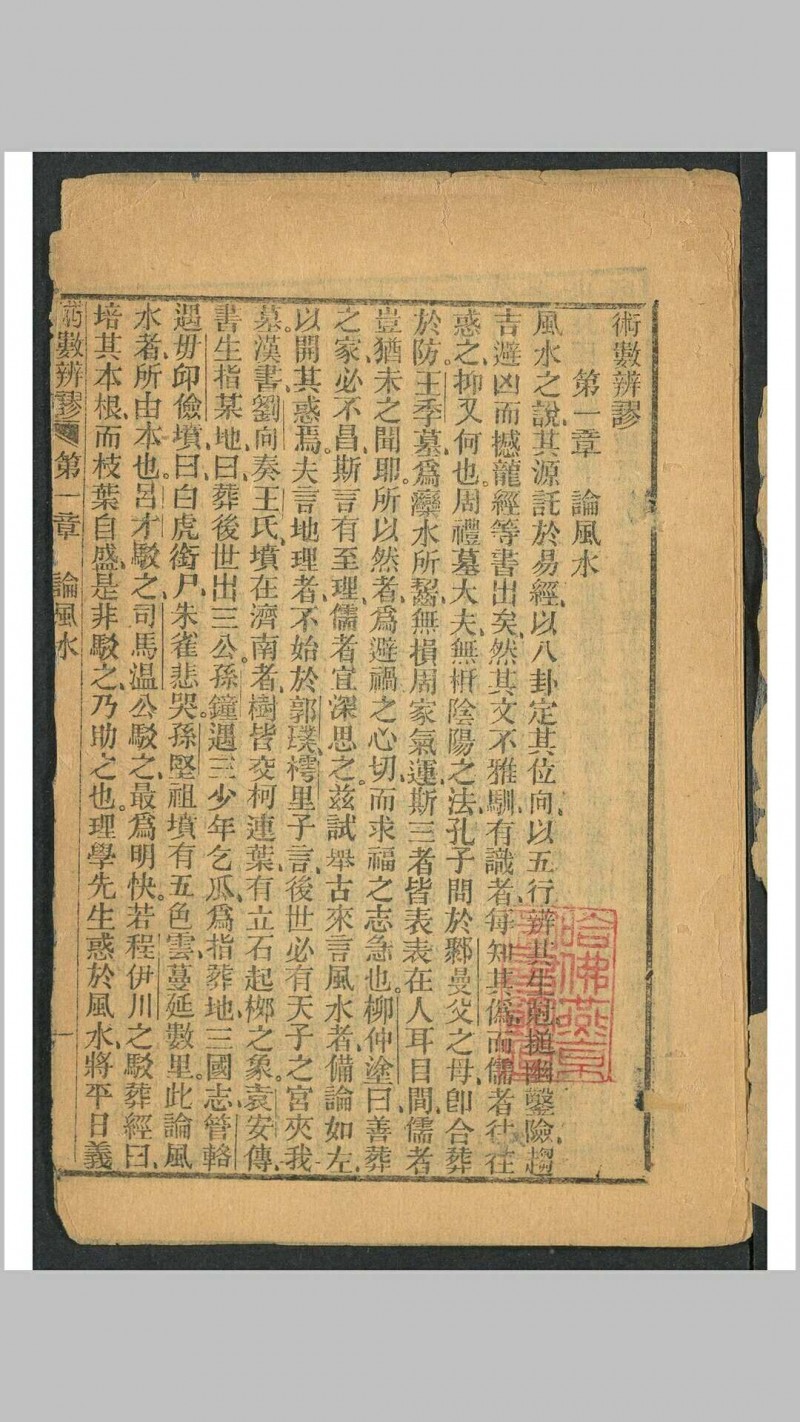 術數辨謬
第一章　論風水
風水之說、其源託於易經、以八卦定其位向、以五行辨其生尅、搥幽鑿險、趨
吉避凶、而撼龍經等書出矣、然其文不雅馴、有識者、每知其僞、而儒者往往
惑之、抑又何也。周禮墓大夫、無堪陰陽之法、孔子問於郰曼父之母、卽合葬
於防、王季墓、爲灤水所齧、無損周家氣運、斯三者皆表表在人耳目間、儒者
豈猶未之聞耶。所以然者、爲避禍之心切、而求福之志急也。柳仲塗曰、善葬
之家、必不昌、斯言有至理、儒者宜深思之。茲試舉古來言風水者、備論如左、
以開其惑焉。夫言地理者、不始於郭璞、樗里子言、後世必有天子之宮夾我
墓。漢書劉向奏王氏、墳在濟南者、樹皆交柯連葉、有立石起桞之象。袁安傳、
書生指某地、曰、葬後世出三公。孫鐘遇三少年乞瓜、爲指葬地。三國志、管輅
過毋卬儉墳、曰、白虎銜尸、朱雀悲哭。孫堅祖墳有五色雲、蔓延數里。此論風
水者、所由本也。呂才駁之、司馬溫公駁之、最爲明快。若程伊川之駁葬經曰、
培其本根、而枝葉自盛、是非駁之、乃助之也。理學先生惑於風水、將平日義
術數辨謬　第一章　論風水　一
哈佛燕京